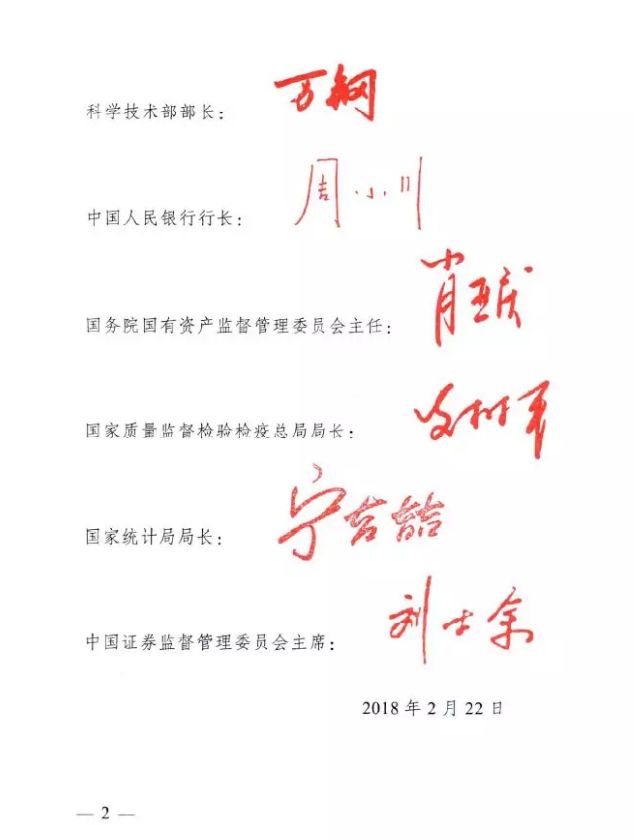 科学技术部部长：万钢
中国人民银行行长：周小川
国务院国有资产监督管理委员会主任：肖亚庆
国家质量监督检验检疫总局局长：支树平
国家统计局局长：宁吉喆
中国证券监督管理委员会主席：刘士余
2018年2月22日
— 2 —